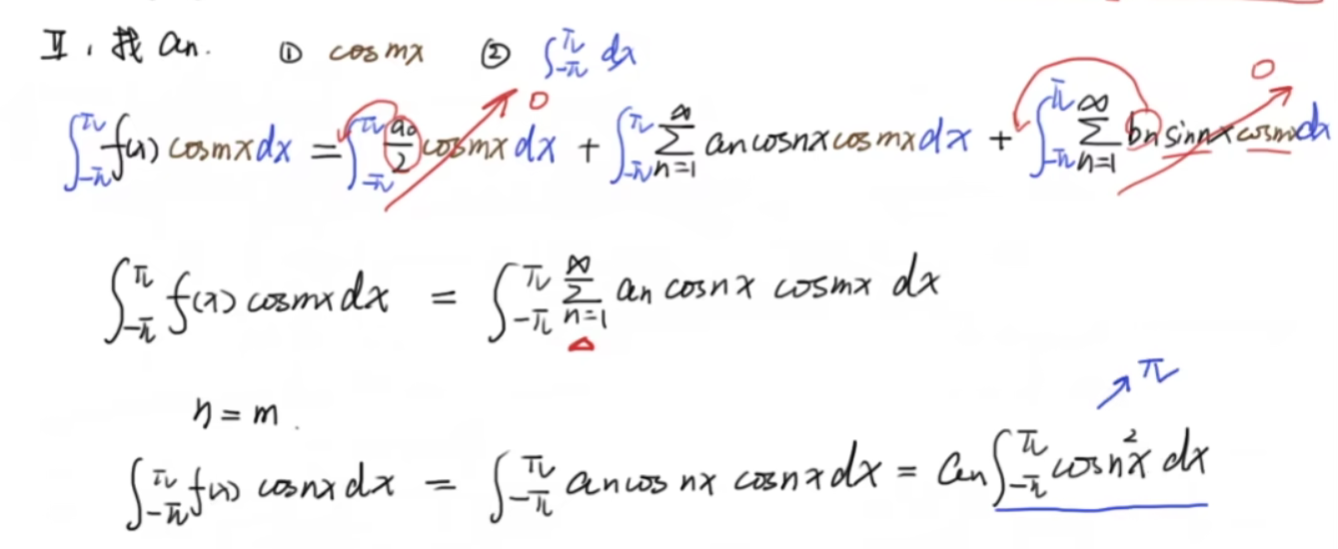 Ⅱ. 找 an. ① cosmx ② ∫_{-π}^{π} dx
∫_{-π}^{π} f(x) cosmx dx = ∫_{-π}^{π} a₀/2 cosmx dx + ∫_{-π}^{π} ∑_{n=1}^{∞} an cosnx cosmx dx + ∫_{-π}^{π} ∑_{n=1}^{∞} bn sinnx cosmx dx
0
0
∫_{-π}^{π} f(x) cosmx dx = ∫_{-π}^{π} ∑_{n=1}^{∞} an cosnx cosmx dx
π
n = m.
∫_{-π}^{π} f(x) cosnx dx = ∫_{-π}^{π} an cos nx cosnx dx = an ∫_{-π}^{π} cosn²x dx